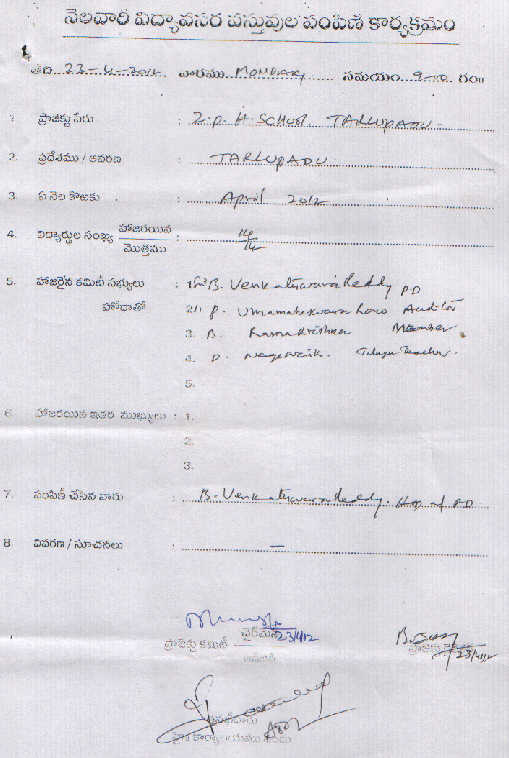 నెలవారి విద్యావసర వస్తువుల పంపిణీ కార్యక్రమం
తేది 23-4-2012 వారము MONDAY సమయం 9-10 గం॥
1. ప్రాజెక్టు పేరు : Z.P.H SCHOOL TARLUPADU
2. ప్రదేశము / ఆవరణ : TARLUPADU
3. ఏ నెల కొఱకు : April 2012
4. విద్యార్థుల సంఖ్య హాజరయిన / మొత్తము : 14/14
5. హాజరైన కమిటీ సభ్యులు : 1 B. Venkateswara Reddy PD
హోదాతో 2 P. Umamaheswara Rao Auditor
3. B. Ramakrishna Member
4. P. Telugu Teacher.
5.
6. హాజరయిన ఇతర ముఖ్యులు : 1.
2.
3.
7. పంపిణీ చేసిన వారు : B. Venkateswara Reddy. PD
8. వివరణ / సూచనలు : —
ఛైర్మన్ 23/4/12
ప్రాజెక్టు కమిటీ
23/4/12